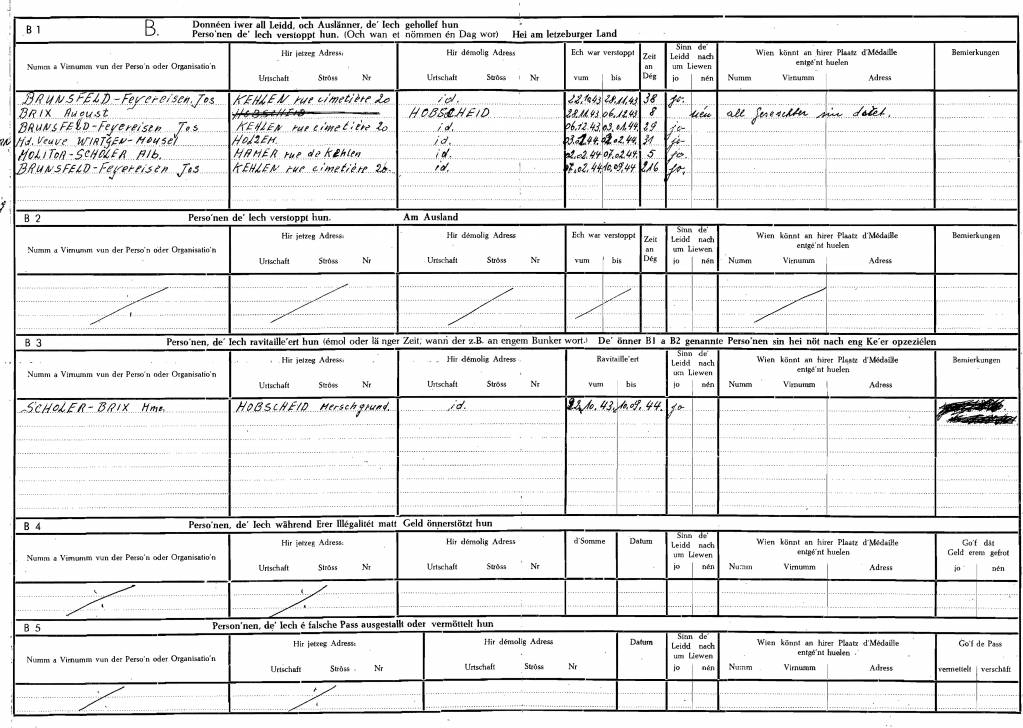 B 1 B. Donnéen iwer all Leidd, och Auslänner, de' Iech gehollef hun
Perso'nen de' Iech verstoppt hun. (Och wan et nömmen én Dag wor) Hei am letzeburger Land
Numm a Virnumm vun der Perso'n oder Organisatio'n
Hir jetzeg Adress:
Urtschaft Ströss Nr
Hir démolig Adress
Urtschaft Ströss Nr
Ech war verstoppt
vum bis
Zeit an Dég
Sinn de' Leidd nach um Liewen
jo nén
Wien könnt an hirer Plaatz d'Médaille entgé'nt huelen
Numm Virnumm Adress
Bemierkungen
BRUNSFELD-Feyereisen Jos KEHLEN rue cimetière 20 id. 28.11.43 38 jo.
BRIX August HOBSCHEID HOBSCHEID 28.11.43 06.12.43 8 nén all
BRUNSFELD-Feyereisen Jos KEHLEN rue cimetière 20 id. 06.12.43 03.01.44 29 jo
Md. Veuve WIRTGEN-Mousel HOLZEM. id. 31 jo
MOLITOR-SCHOLER Alb. MAMER rue de Kehlen id. 02.02.44 07.02.44. 5 jo.
BRUNSFELD-Feyereisen Jos KEHLEN rue cimetière 20. id. 07.02.44 10.09.44 216 jo.
B 2 Perso'nen de' Iech verstoppt hun. Am Ausland
Numm a Virnumm vun der Perso'n oder Organisatio'n
Hir jetzeg Adress:
Urtschaft Ströss Nr
Hir démolig Adress
Urtschaft Ströss Nr
Ech war verstoppt
vum bis
Zeit an Dég
Sinn de' Leidd nach um Liewen
jo nén
Wien könnt an hirer Plaatz d'Médaille entgé'nt huelen
Numm Virnumm Adress
Bemierkungen
B 3 Perso'nen, de' Iech ravitaille'ert hun (émol oder länger Zeit, wann der z.B. an engem Bunker wort.) De' önner B1 a B2 genannte Perso'nen sin hei nöt nach eng Ke'er opzeziélen
Numm a Virnumm vun der Perso'n oder Organisatio'n
Hir jetzeg Adress:
Urtschaft Ströss Nr
Hir démolig Adress
Urtschaft Ströss Nr
Ravitaille'ert
vum bis
Sinn de' Leidd nach um Liewen
jo nén
Wien könnt an hirer Plaatz d'Médaille entgé'nt huelen
Numm Virnumm Adress
Bemierkungen
SCHOLER-BRIX Mme. HOBSCHEID Merschgrund. id. 22.10.43. 10.09.44. jo
B 4 Perso'nen, de' Iech während Erer Illégalitét matt Geld önnerstötzt hun
Numm a Virnumm vun der Perso'n oder Organisatio'n
Hir jetzeg Adress:
Urtschaft Ströss Nr
Hir démolig Adress
Urtschaft Ströss Nr
d'Somme
Datum
Sinn de' Leidd nach um Liewen
jo nén
Wien könnt an hirer Plaatz d'Médaille entgé'nt huelen
Numm Virnumm Adress
Go'f dât Geld erem gefrot
jo nén
B 5 Person'nen, de' Iech é falsche Pass ausgestallt oder vermöttelt hun
Numm a Virnumm vun der Perso'n oder Organisatio'n
Hir jetzeg Adress:
Urtschaft Ströss Nr
Hir démolig Adress
Urtschaft Ströss Nr
Datum
Sinn de' Leidd nach um Liewen
jo nén
Wien könnt an hirer Plaatz d'Médaille entgé'nt huelen
Numm Virnumm Adress
Go'f de Pass
vermettelt verschäft